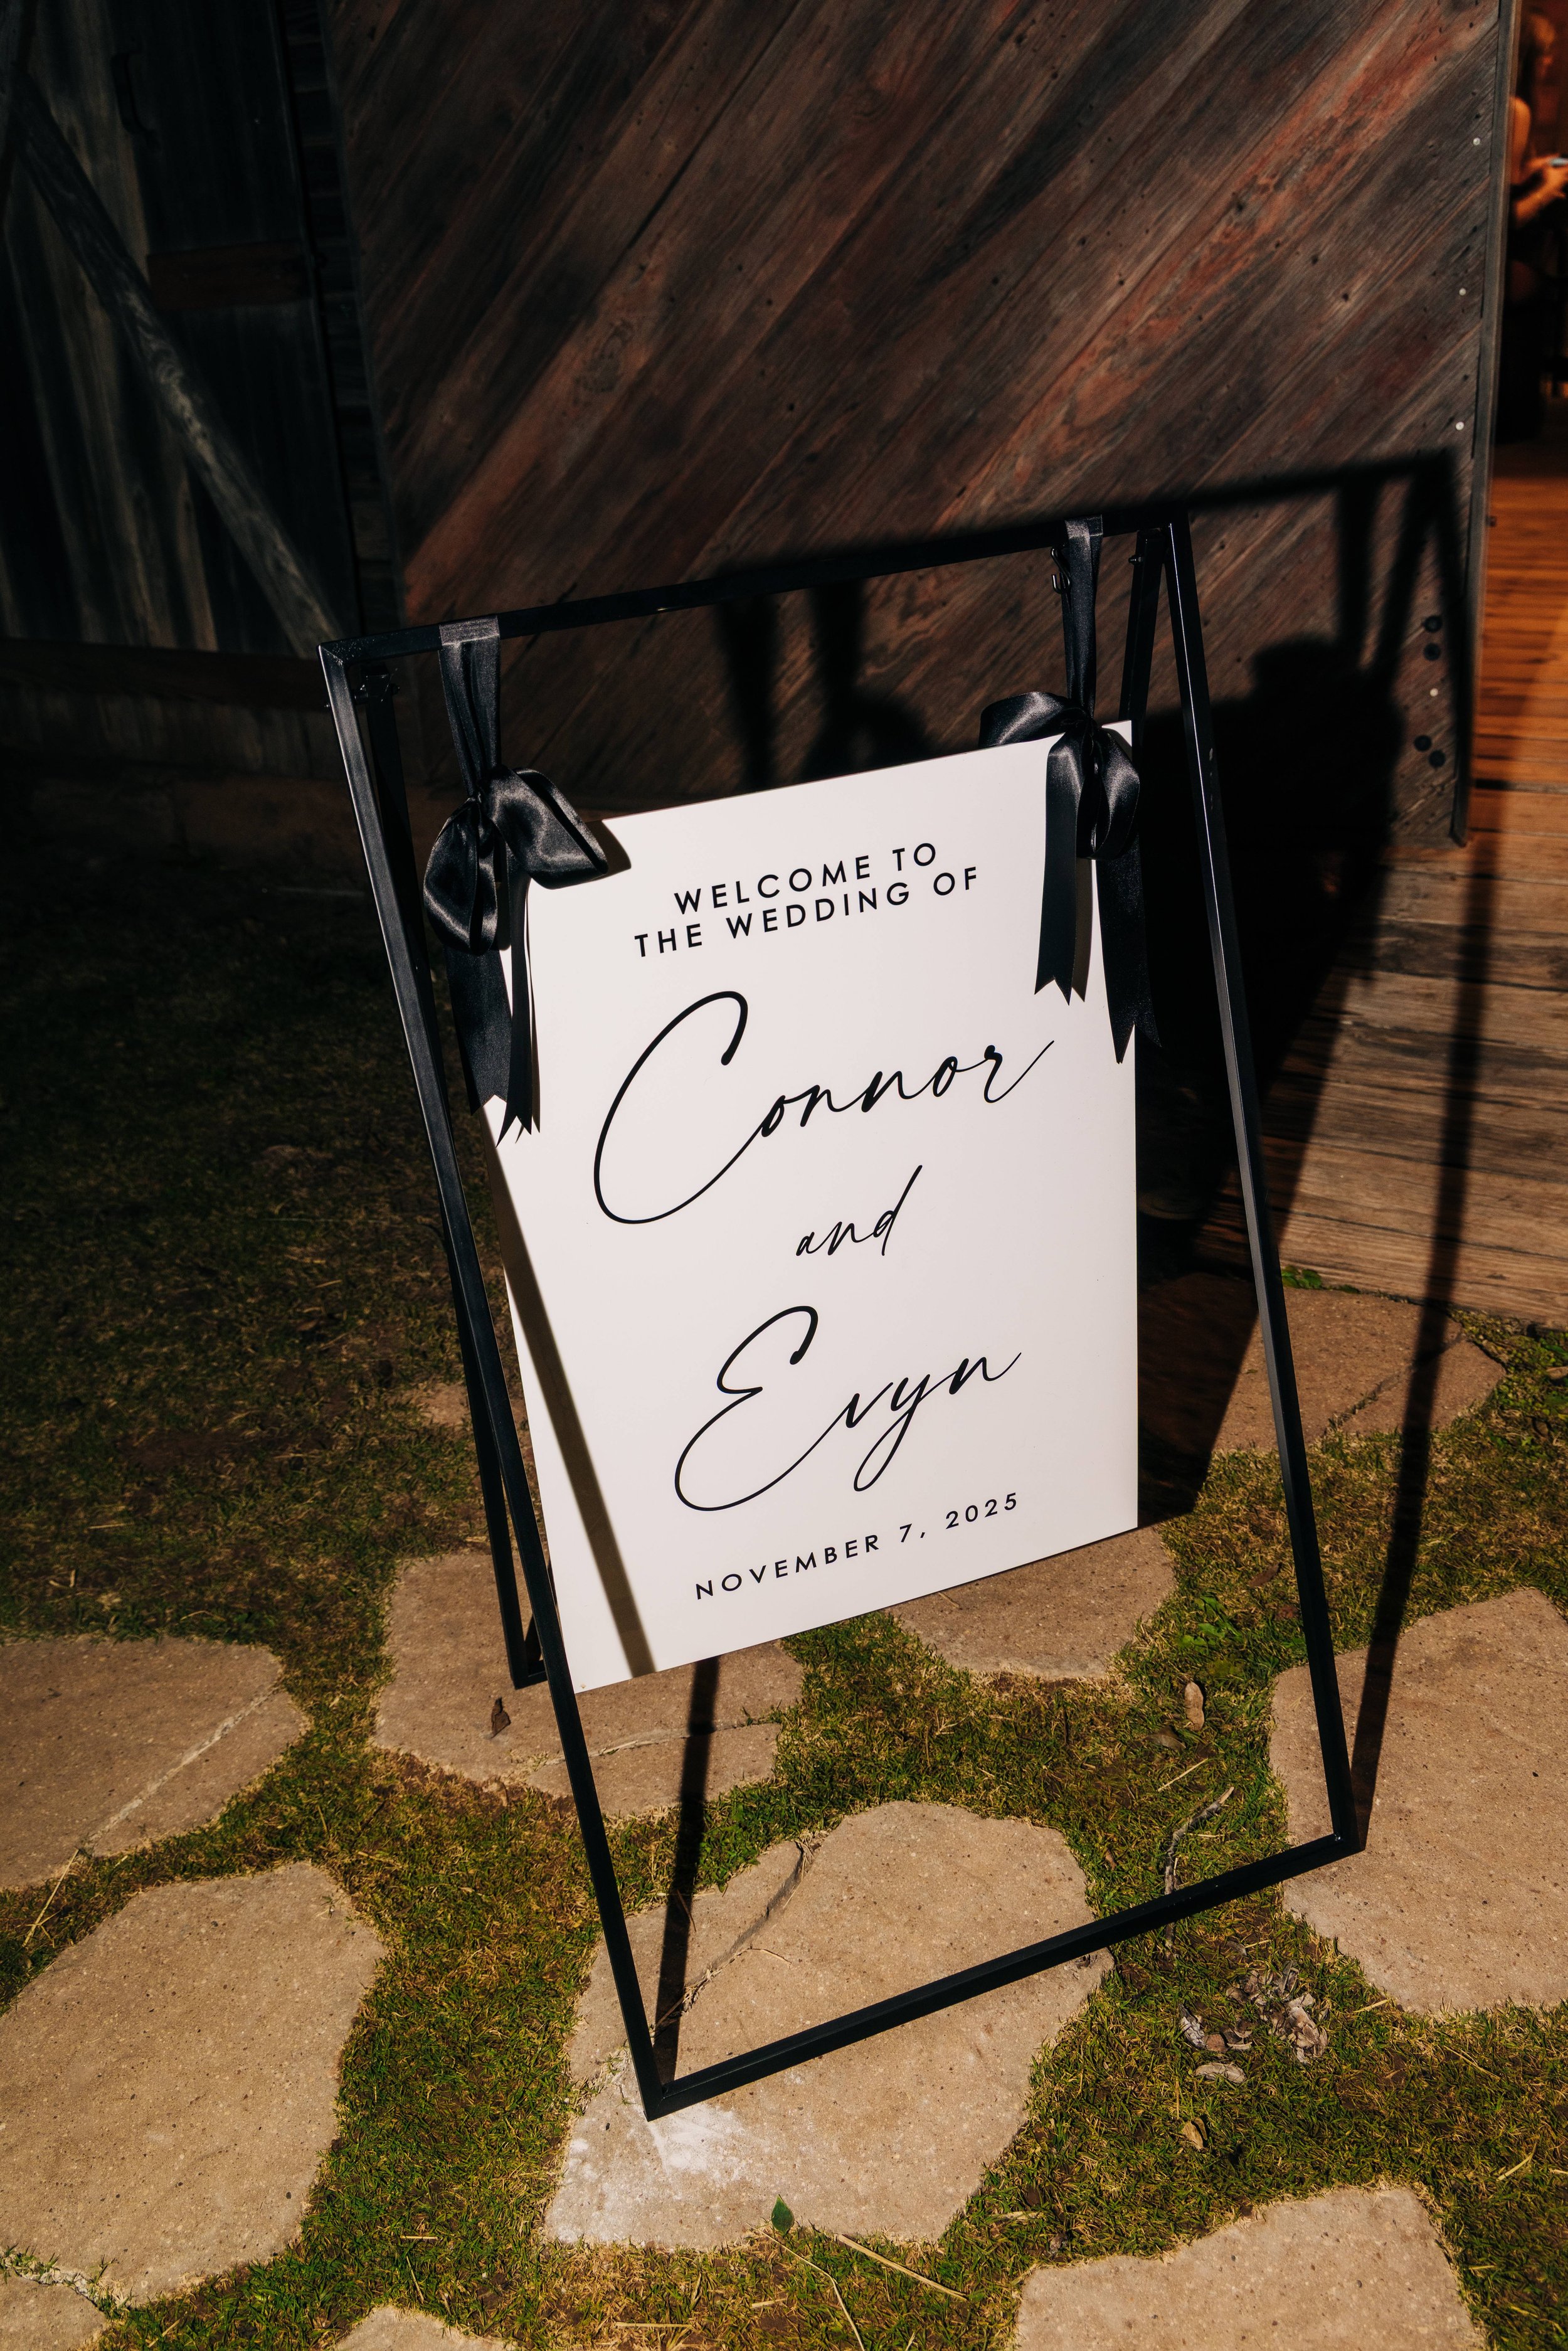 WELCOME TO
THE WEDDING OF
Connor
and
Evyn
NOVEMBER 7, 2025